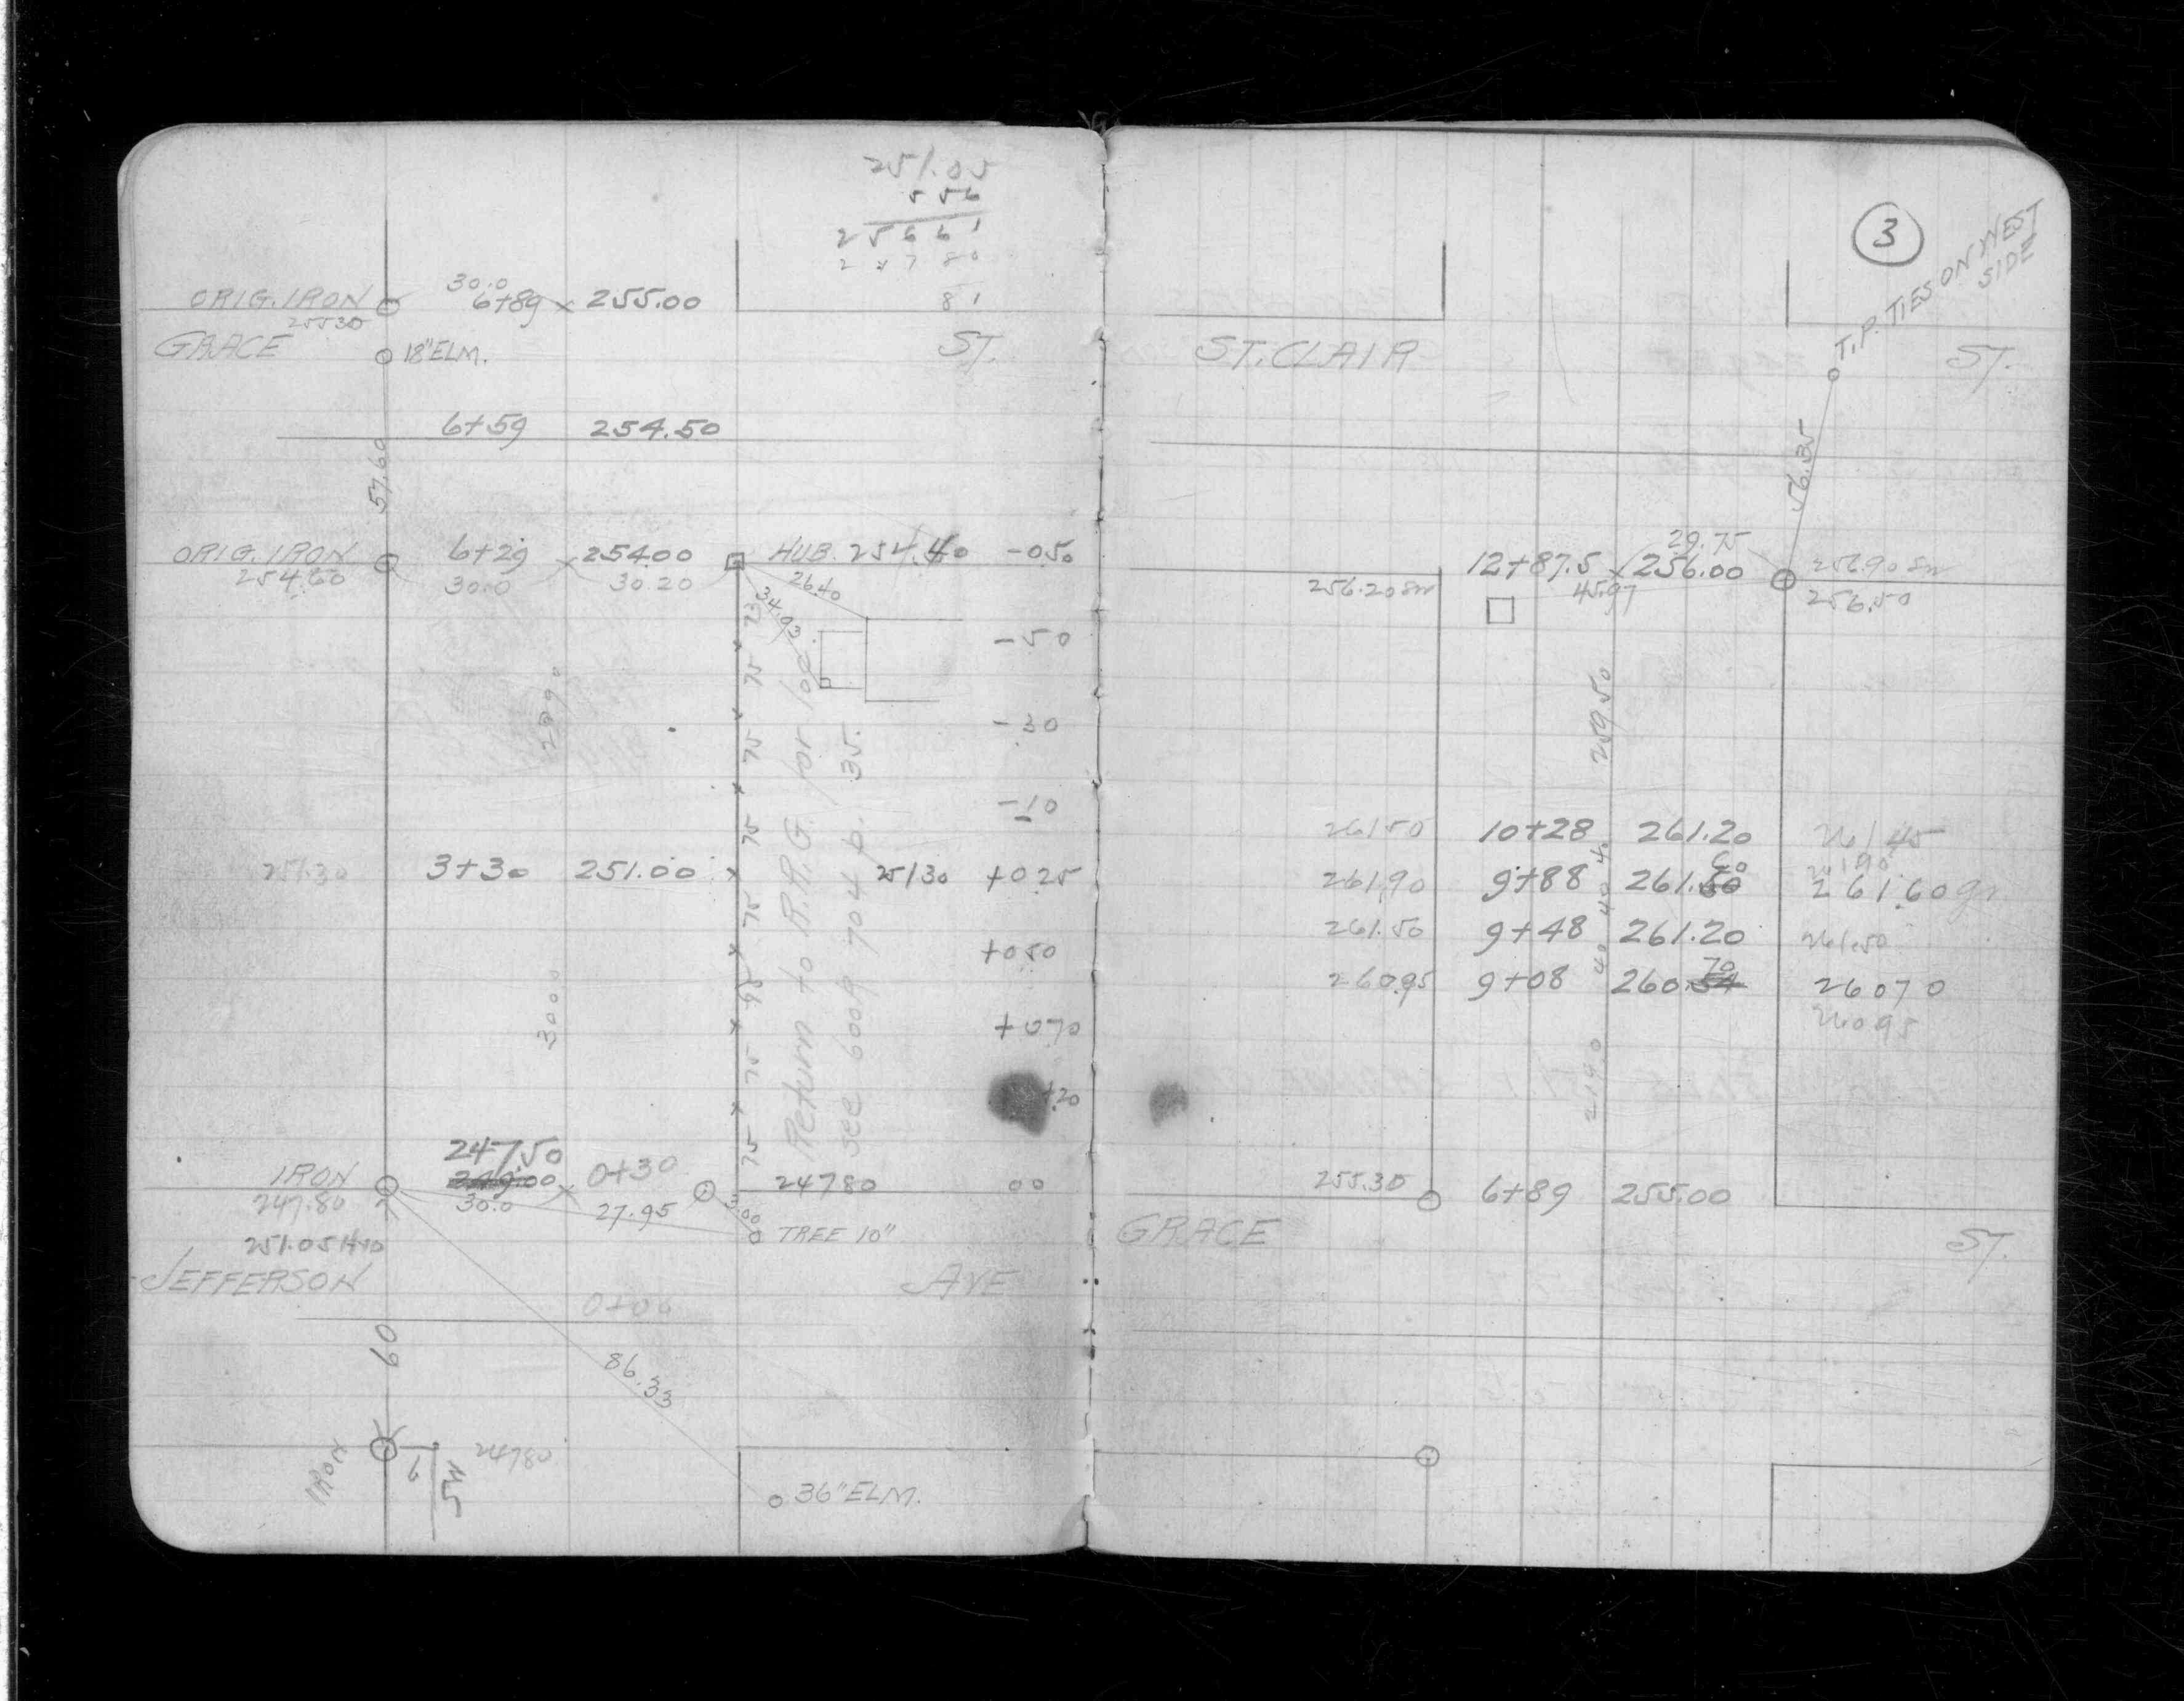 251.05
556
25661
24780
81
30.0
ORIG. IRON 6+89 255.00
25530
GRACE ST.
18" ELM.
6+59 254.50
57.60
ORIG. IRON 6+29 254.00 HUB. 254.40 -050
254.60 30.0 30.20 26.40
34.93
73
-50
75
2990
-30
75
-10
75
251.30 3+30 251.00 25130 +025
75
+050
75
3000
+070
75
+20
75
Return to R.R.G. for loc
see 600R 704 p. 35.
247.50
IRON 249.00 0+30 24780 00
247.80 30.0 27.95 3.00
TREE 10"
251.05 Hyd
JEFFERSON AVE
0+00
60
86.33
IRON 6 SW 24780
36" ELM.
3
T.P. TIES ON WEST
SIDE
ST. CLAIR ST.
56.35
29.75
12+87.5 256.00 256.90 SW
256.20 SW 45.97 256.50
259.50
26150 10+28 261.20 26145
40
60 26190
26190 9+88 261.50 26160 gr
40
261.50 9+48 261.20 261.50
40
70
260.95 9+08 260.54 26070
26095
2190
255.30 6+89 255.00
GRACE ST.